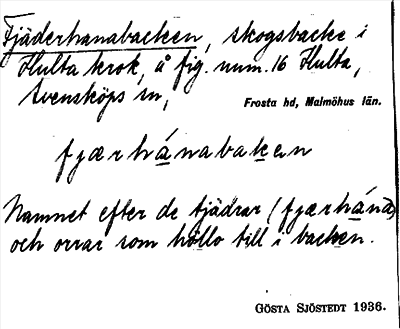 Fjäderhanabacken, skogsbacke i
Hulta krok, å fig. num. 16 Hulta,
Svensköps sn,
Frosta hd, Malmöhus län.
fjærhánabaken
Namnet efter de tjädrar (fjærhána)
och orrar som höllo till i backen.
GÖSTA SJÖSTEDT 1936.